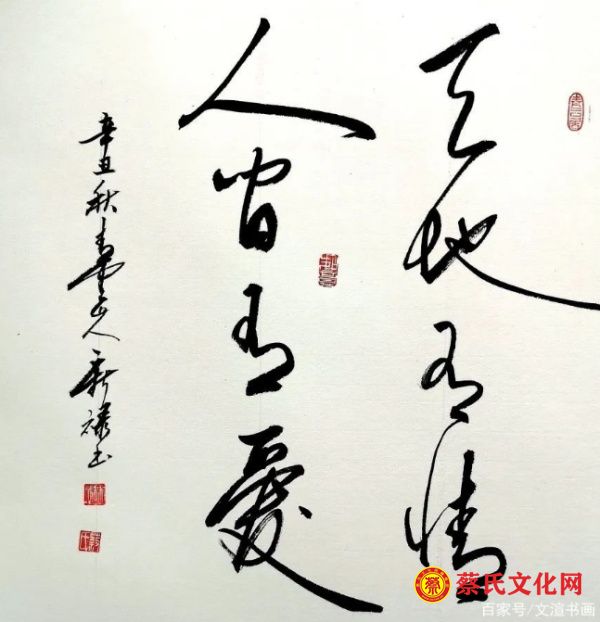 天地有情
人间有爱
辛丑秋青云山人新禄书
蔡氏文化网
百家号/文渲书画